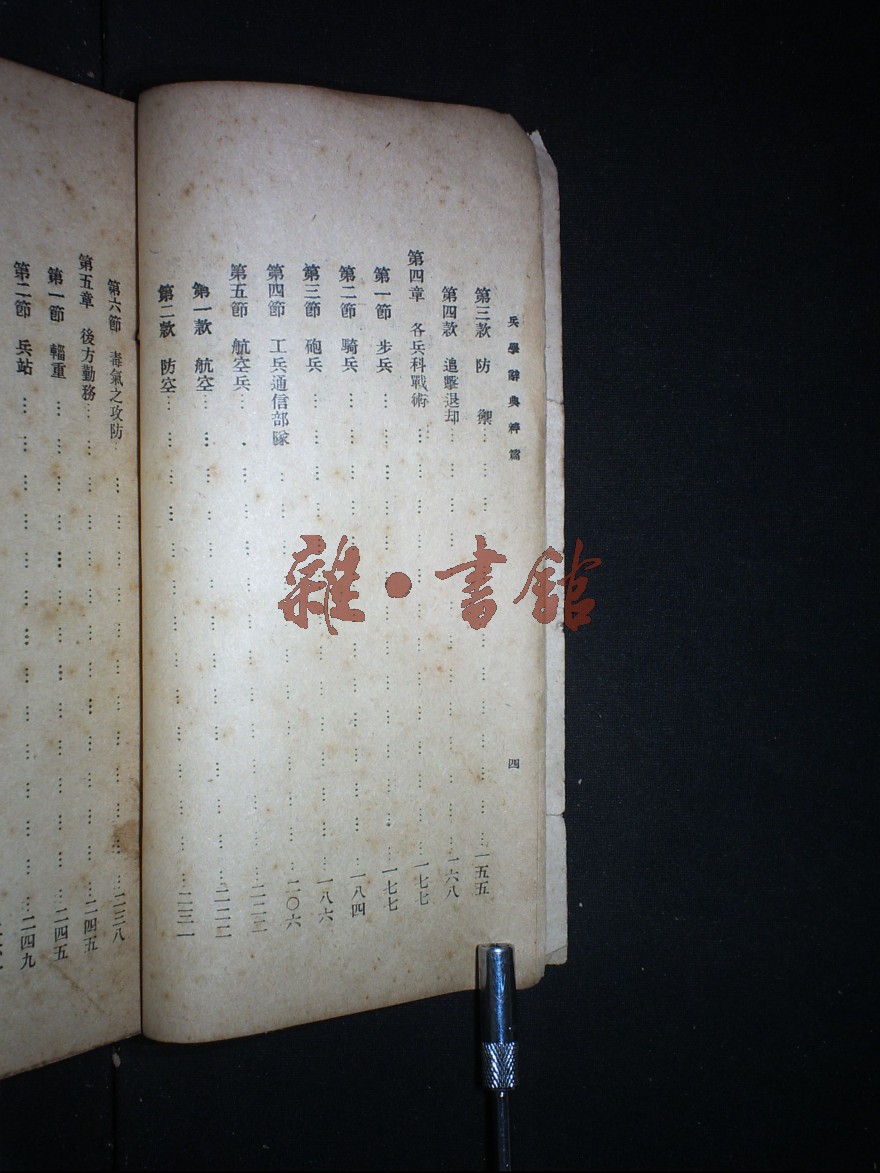 兵學辭典粹篇
四
第三款 防禦 … 一五五
第四款 追擊退却 … 一六八
第四章 各兵科戰術 … 一七七
第一節 步兵 … 一七七
第二節 騎兵 … 一八四
第三節 砲兵 … 一八六
第四節 工兵通信部隊 … 二〇六
第五節 航空兵 … 二二二
第一款 航空 … 二二二
第二款 防空 … 二三一
第六節 毒氣之攻防 … 二三八
第五章 後方勤務 … 二四五
第一節 輜重 … 二四五
第二節 兵站 … 二四九
雜·書館